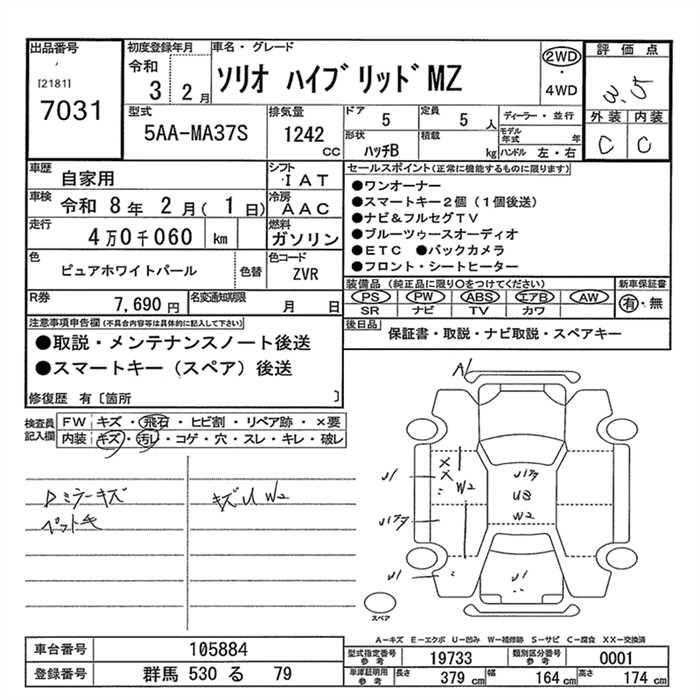 出品番号
[2181]
7031
初度登録年月
令和
3 2月
車名・グレード
ソリオ ハイブリッドMZ
2WD
・
4WD
評価点
3.5
外装 内装
C C
型式
5AA-MA37S
排気量
1242
cc
ドア
5
定員
5 人
形状
ハッチB
積載
kg
ディーラー・並行
モデル年式 年
ハンドル 左・右
車歴
自家用
シフト
・IAT
車検
令和 8年 2月( 1日)
冷房
AAC
走行
4万0千060 km
燃料
ガソリン
色
ピュアホワイトパール
色替
色コード
ZVR
R券
7,690円
名変通知期限
月 日
セールスポイント(正常に機能するものに限ります)
●ワンオーナー
●スマートキー2個(1個後送)
●ナビ&フルセグTV
●ブルーツゥースオーディオ
●ETC ●バックカメラ
●フロント・シートヒーター
装備品(純正品に限り○をつけてください)
PS PW ABS エアB AW
SR ナビ TV カワ
新車保証書
有・無
後日品
保証書・取説・ナビ取説・スペアキー
注意事項申告欄(不具合内容等は具体的に記入して下さい)
●取説・メンテナンスノート後送
●スマートキー(スペア)後送
修復歴 有〔箇所 〕
検査員記入欄
FW キズ・飛石・ヒビ割・リペア跡・×要
内装 キズ・汚レ・コゲ・穴・スレ・キレ・破レ
Dミラーキズ
ペット毛
キズU W2
A1
××
U1
W2
U1
U3
W2
U1
U1
スペア
A−キズ E−エクボ U−凹み W−補修跡 S−サビ C−腐食 XX−交換済
車台番号
105884
登録番号
群馬 530 る 79
型式指定番号
参考
19733
類別区分番号
参考
0001
車庫証明用
参考
長さ 379 cm
幅 164 cm
高さ 174 cm